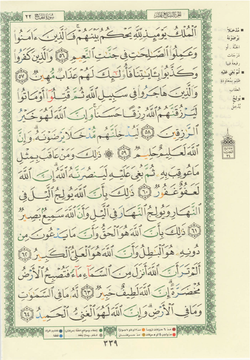 الْمُلْكُ يَوْمَئِذٍ لِّلَّهِ يَحْكُمُ بَيْنَهُمْ فَالَّذِينَ ءَامَنُوا
وَعَمِلُوا الصَّالِحَاتِ فِي جَنَّاتِ النَّعِيمِ ٥٦ وَالَّذِينَ كَفَرُوا
وَكَذَّبُوا بِـَٔايَاتِنَا فَأُولَٰئِكَ لَهُمْ عَذَابٌ مُّهِينٌ ٥٧
وَالَّذِينَ هَاجَرُوا فِي سَبِيلِ اللَّهِ ثُمَّ قُتِلُوا أَوْ مَاتُوا
لَيَرْزُقَنَّهُمُ اللَّهُ رِزْقًا حَسَنًا وَإِنَّ اللَّهَ لَهُوَ خَيْرُ
الرَّازِقِينَ ٥٨ لَيُدْخِلَنَّهُم مُّدْخَلًا يَرْضَوْنَهُ وَإِنَّ
اللَّهَ لَعَلِيمٌ حَلِيمٌ ٥٩ ذَٰلِكَ وَمَنْ عَاقَبَ بِمِثْلِ
مَا عُوقِبَ بِهِ ثُمَّ بُغِيَ عَلَيْهِ لَيَنصُرَنَّهُ اللَّهُ إِنَّ اللَّهَ
لَعَفُوٌّ غَفُورٌ ٦٠ ذَٰلِكَ بِأَنَّ اللَّهَ يُولِجُ الَّيْلَ فِي
النَّهَارِ وَيُولِجُ النَّهَارَ فِي الَّيْلِ وَأَنَّ اللَّهَ سَمِيعٌ بَصِيرٌ
٦١ ذَٰلِكَ بِأَنَّ اللَّهَ هُوَ الْحَقُّ وَأَنَّ مَا يَدْعُونَ مِن
دُونِهِ هُوَ الْبَاطِلُ وَأَنَّ اللَّهَ هُوَ الْعَلِيُّ الْكَبِيرُ ٦٢
أَلَمْ تَرَ أَنَّ اللَّهَ أَنزَلَ مِنَ السَّمَاءِ مَاءً فَتُصْبِحُ الْأَرْضُ
مُخْضَرَّةً إِنَّ اللَّهَ لَطِيفٌ خَبِيرٌ ٦٣ لَّهُ مَا فِي السَّمَاوَاتِ
وَمَا فِي الْأَرْضِ وَإِنَّ اللَّهَ لَهُوَ الْغَنِيُّ الْحَمِيدُ ٦٤
٣٣٩